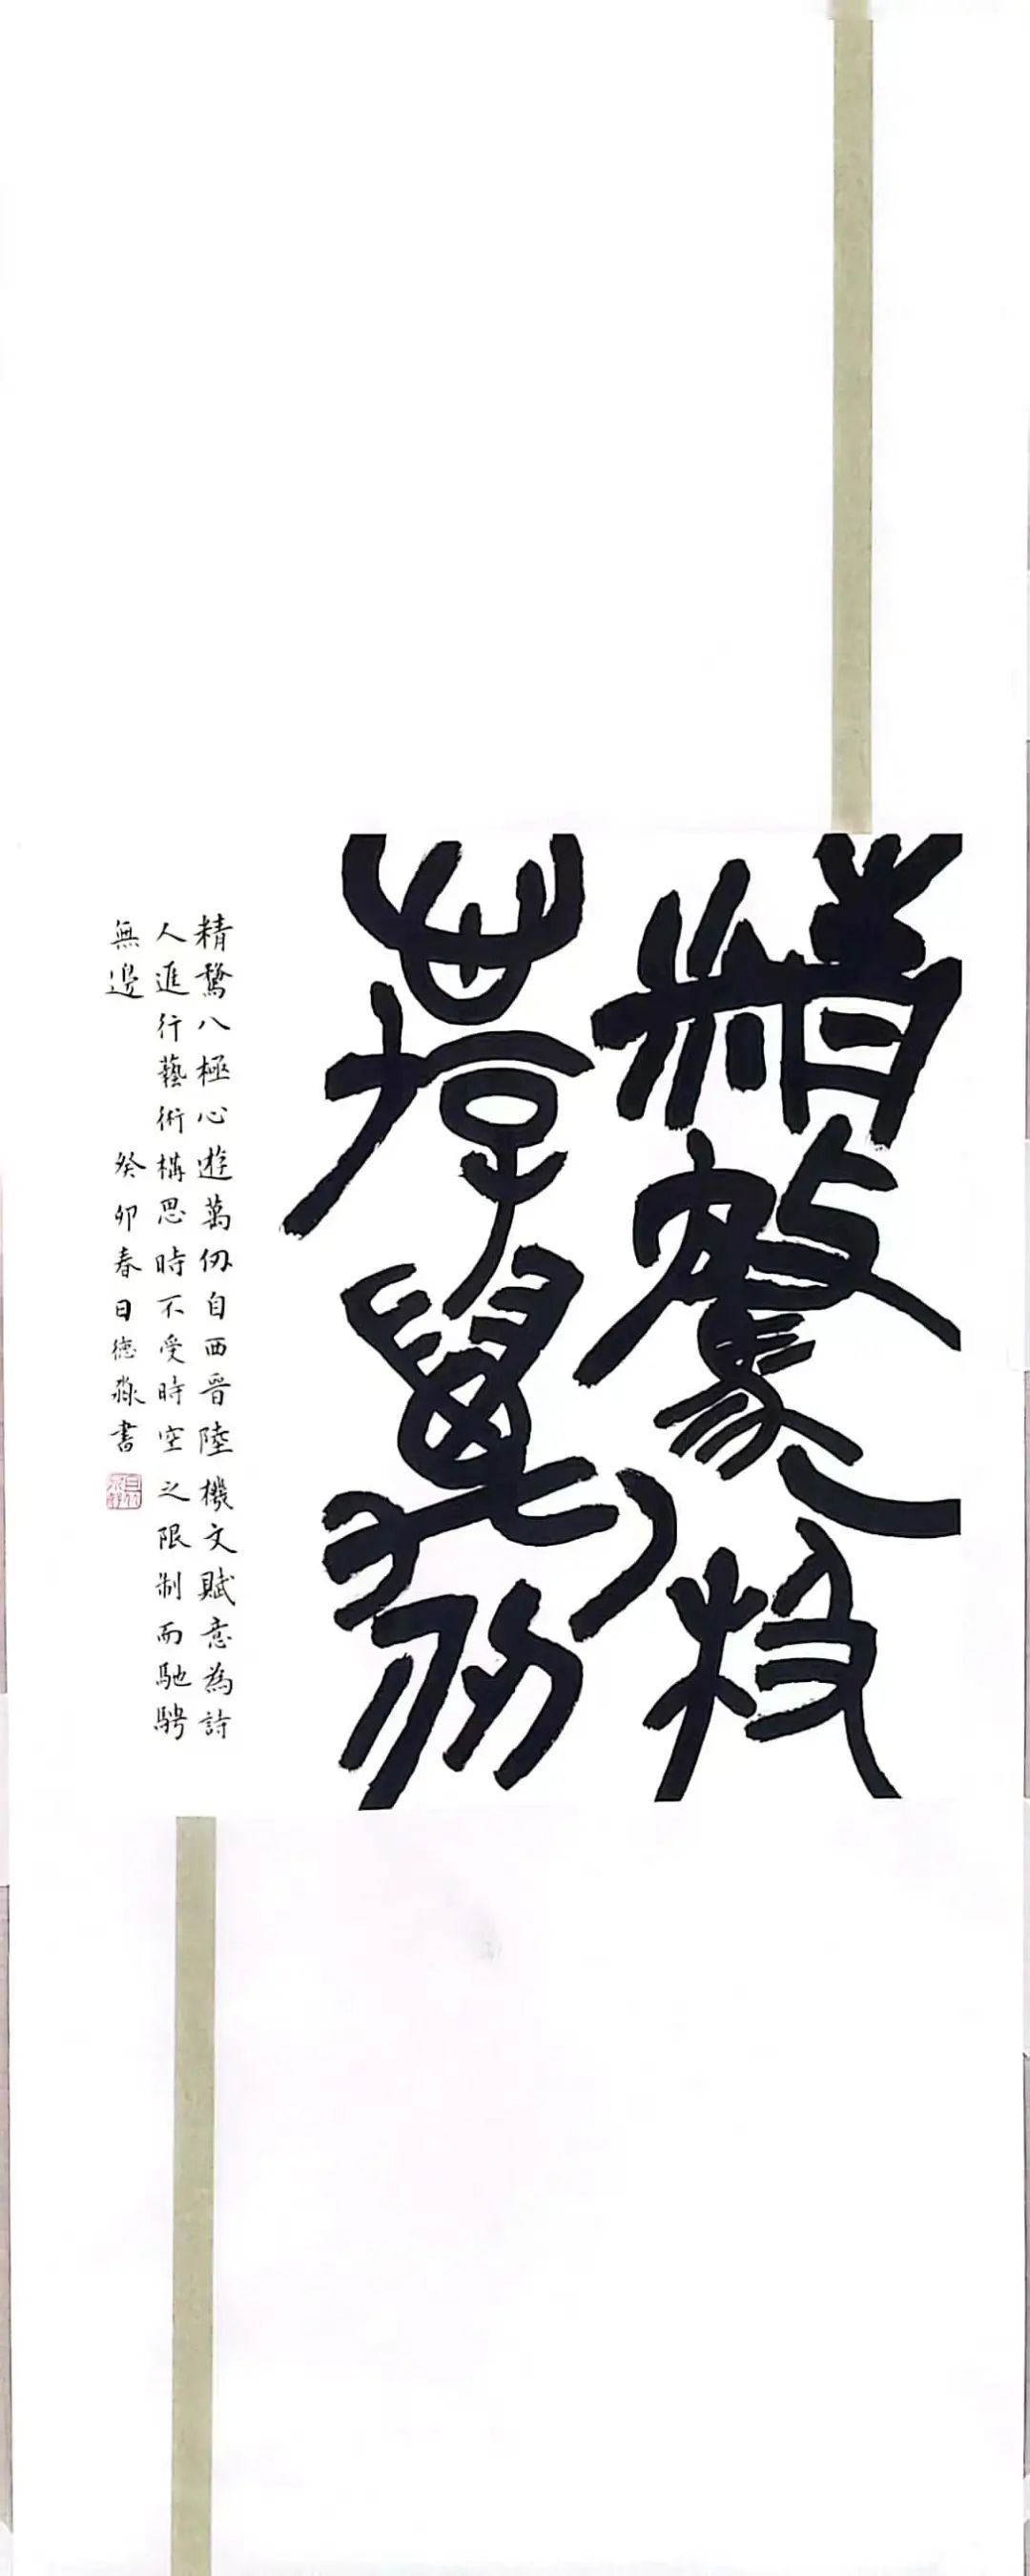 精騖八極
心遊萬仞
精騖八極心遊萬仞自西晉陸機文賦意為詩
人進行藝術構思時不受時空之限制而馳騁
無邊 癸卯春日德書